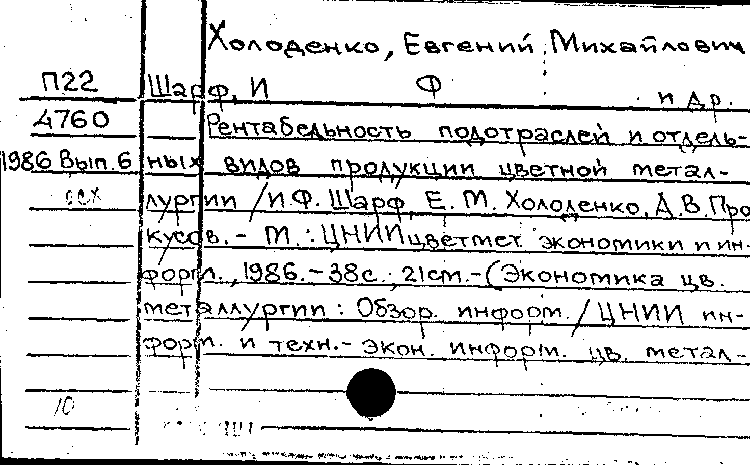 Холоденко, Евгений Михайлович
П22 Шарф, И Ф и др.
4760 Рентабельность подотраслей и отдель-
1986 Вып. 6 ных видов продукции цветной метал-
лургии / И.Ф. Шарф, Е. М. Холоденко, Д.В. Про
кусов. - М. : ЦНИИцветмет экономики и ин-
форм., 1986. - 38с.; 21см. - (Экономика цв.
металлургии : Обзор. информ. / ЦНИИ ин-
форм. и техн.- экон. информ. цв. метал-
10